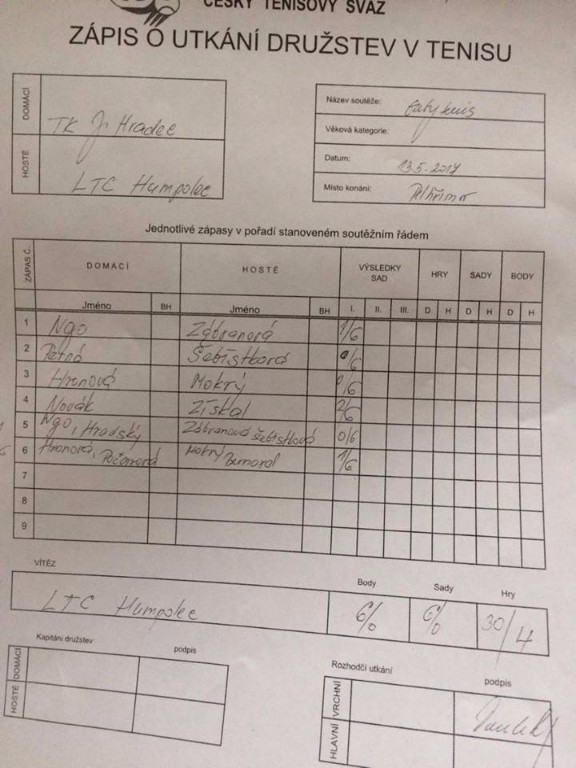 ČESKÝ TENISOVÝ SVAZ
ZÁPIS O UTKÁNÍ DRUŽSTEV V TENISU
DOMÁCÍ TK J. Hradec
HOSTÉ LTC Humpolec
Název soutěže:
Věková kategorie:
Datum: 13.5.2017
Místo konání: Pelhřimov
Jednotlivé zápasy v pořadí stanoveném soutěžním řádem
ZÁPAS Č. DOMACÍ HOSTÉ VÝSLEDKY SAD HRY SADY BODY
Jméno BH Jméno BH I. II. III. D H D H D H
1 Ngo Zábranová 1/6
2 Šebístková /6
3 Hronová Mokrý /6
4 Novák Získal 2/6
5 Ngo, Hradský Zábranová Šebístková 0/6
6 Hronová, Mokrý 1/6
7
8
9
VÍTĚZ Body Sady Hry
LTC Humpolec 6/0 6/0 30/4
Kapitáni družstev podpis
DOMÁCÍ
HOSTÉ
Rozhodčí utkání podpis
VRCHNÍ
HLAVNÍ